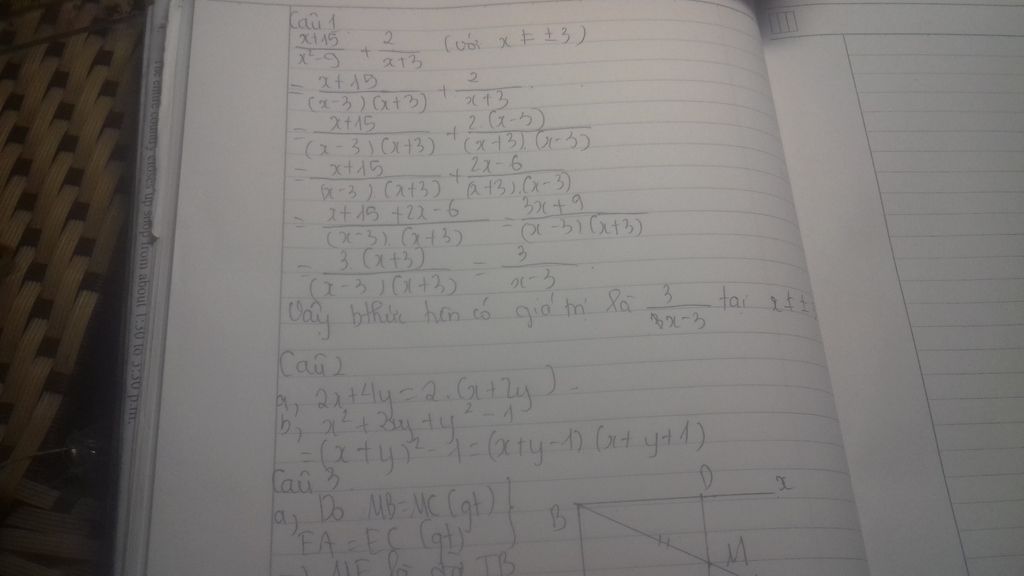 Câu 1
x+15/x²-9 + 2/x+3 (với x ≠ ±3)
= x+15/(x-3)(x+3) + 2/x+3.
= x+15/(x-3)(x+3) + 2(x-3)/(x+3).(x-3)
= x+15/(x-3)(x+3) + 2x-6/(x+3).(x-3)
= x+15+2x-6/(x-3).(x+3) = 3x+9/(x-3)(x+3)
= 3(x+3)/(x-3)(x+3) = 3/x-3.
Vậy bthức có giá trị là 3/3x-3 tại x ≠ ±
Câu 2
a, 2x+4y=2.(x+2y)
b, x²+2xy+y²-1
=(x+y)²-1=(x+y-1)(x+y+1)
Câu 3
a, Do MB=MC(gt)
EA=EC(gt)
B D x
M
from about 1:30 to 3:30 p.m.